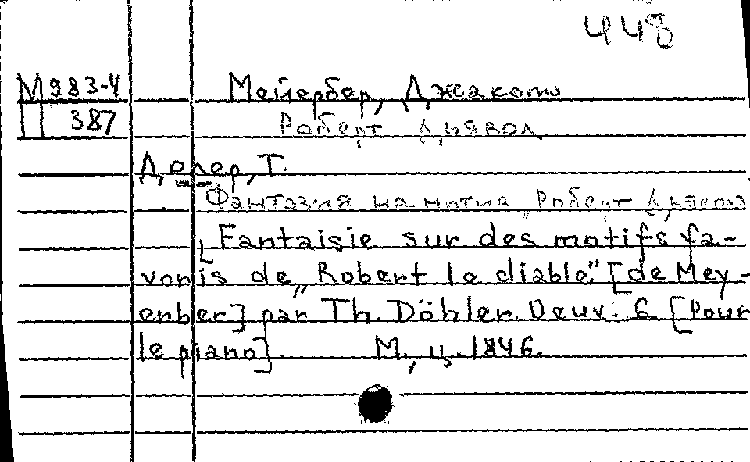 448
М 983-4 Мейербер, Джакомо
387 Роберт Дьявол
Делер, Т.
Фантазия на мотив „Роберт Дьявол
[Fantaisie sur des motifs fa-
voris de „Robert le diable" [de Mey-
erber] par Th. Döhler. Oeuv. 6 [Pour
le piano]. М., ц. 1846.